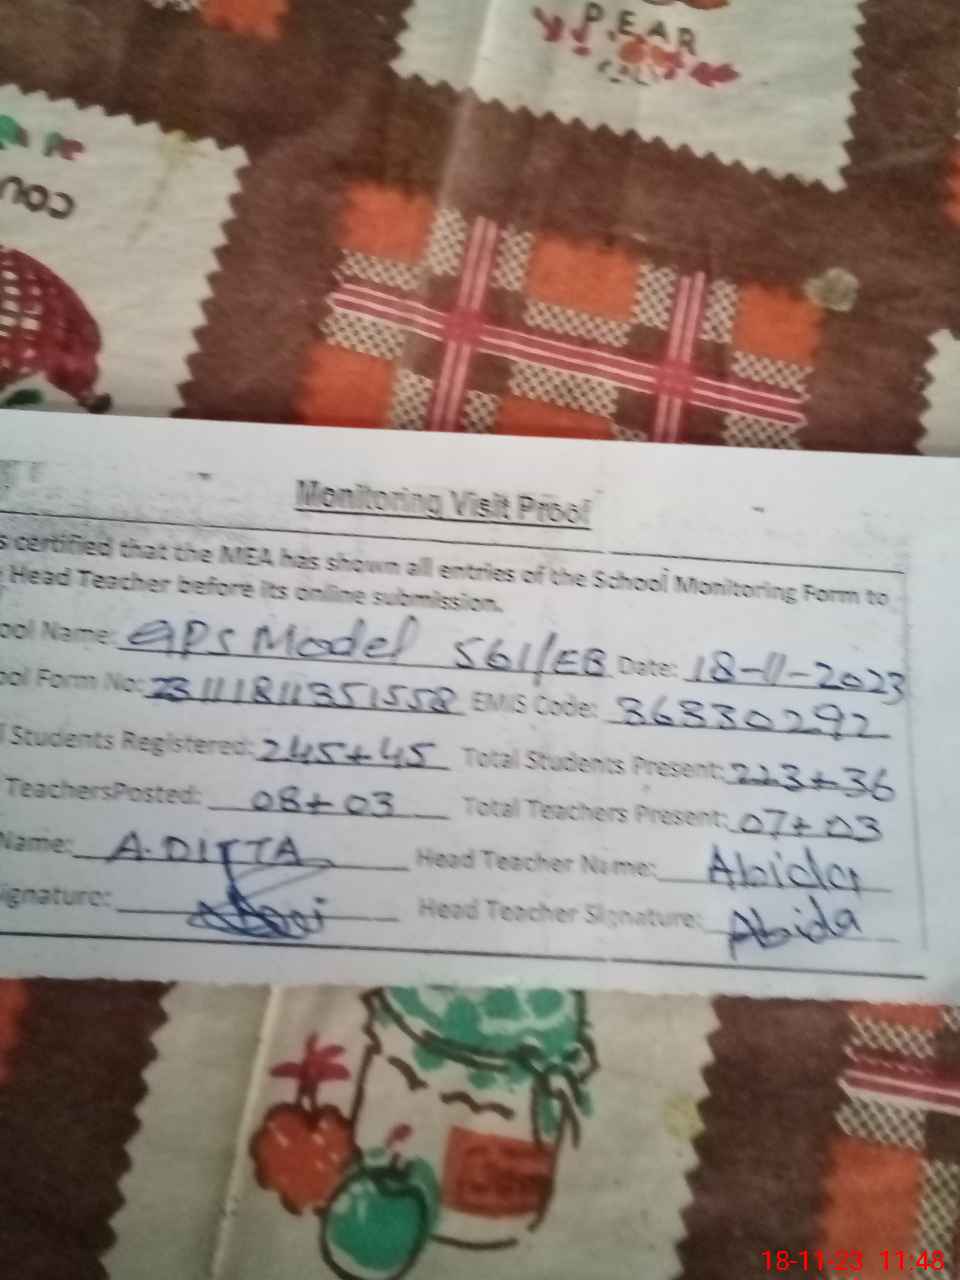 PEAR
COU
Monitoring Visit Proof
s certified that the MEA has shown all entries of the School Monitoring Form to
Head Teacher before its online submission.
ool Name: GPS Model 561/EB Date: 18-11-2023
ool Form No: 23111811351558 EMIS Code: 36330292
l Students Registered: 245+45 Total Students Present: 223+36
TeachersPosted: 08+03 Total Teachers Present: 07+03
Name: A.DITTA Head Teacher Name: Abida
ignature: Head Teacher Signature: Abida
18-11-23 11:48